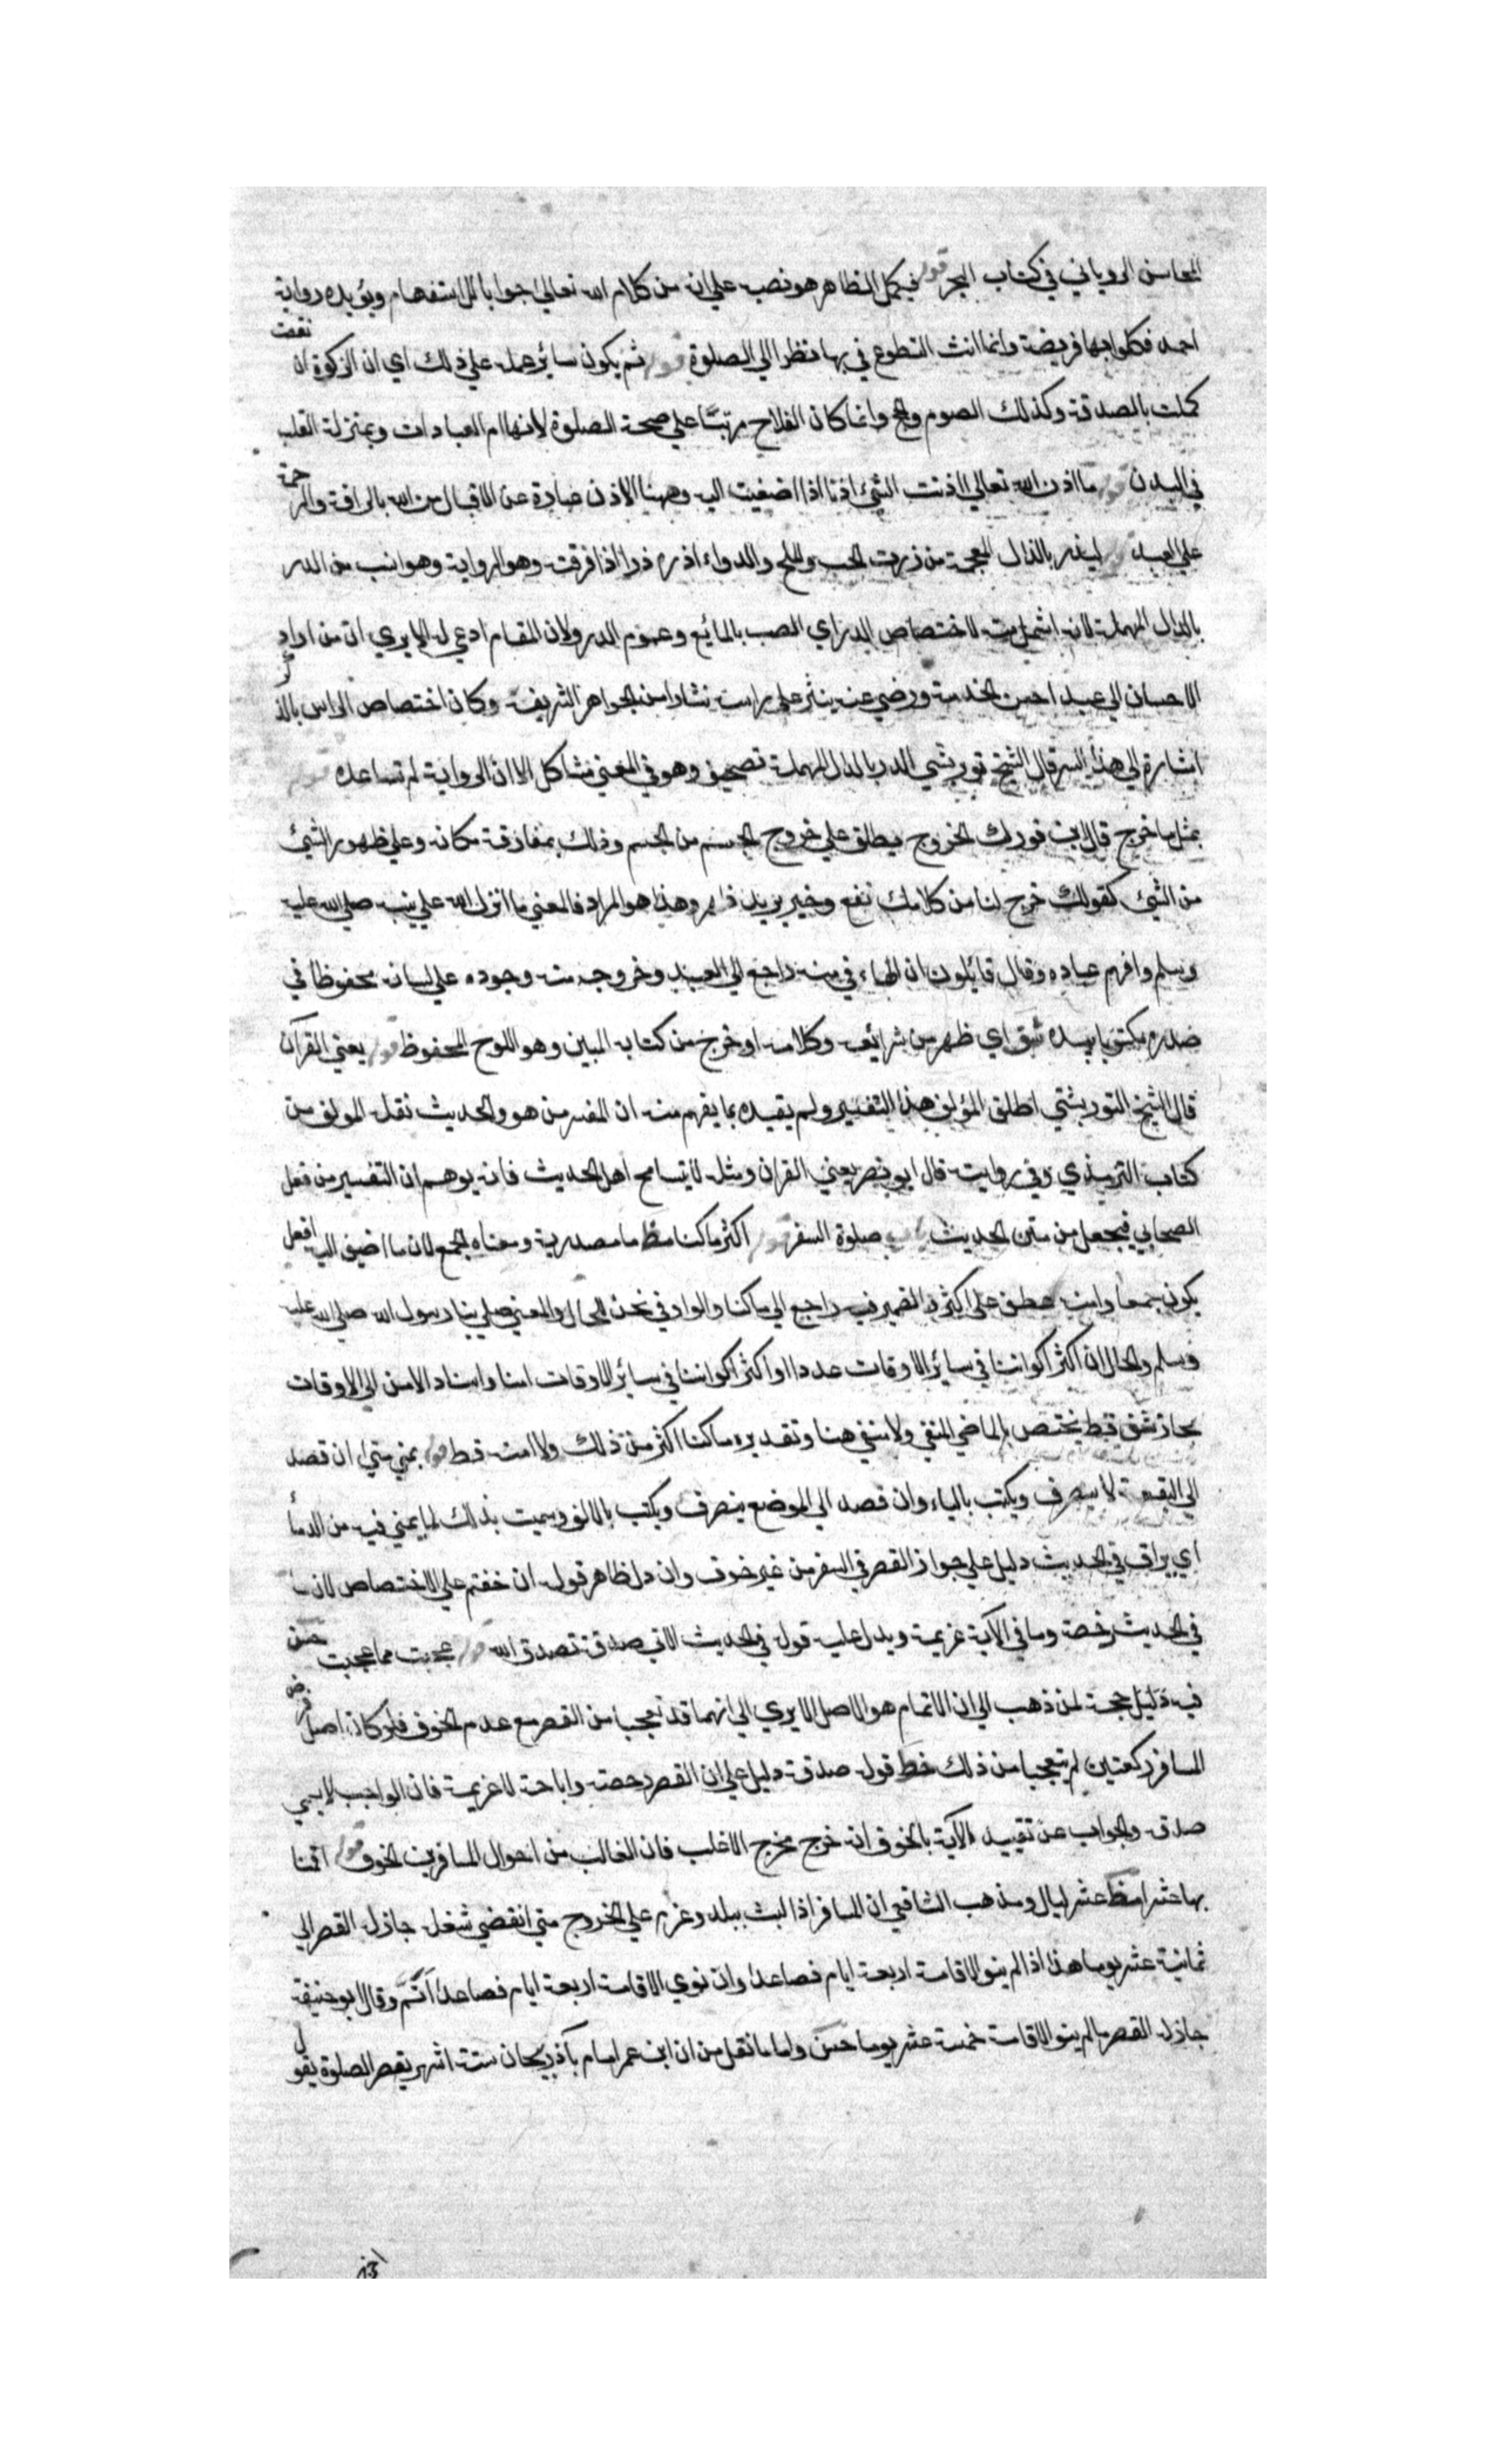 المحاسن الروياني في كتاب البحر قوله فيكمل الظاهر هو نصب على انه من كلام الله تعالى جوابا للاستفهام ويؤيده رواية
احمد فكملوا بها فريضة وانما انث التطوع في بها نظرا الى الصلوة قوله ثم يكون سائر عمله على ذلك اي ان الزكوة ان نقصت
كملت بالصدقة وكذلك الصوم والحج وانما كان الفلاح مرتبًا على صحة الصلوة لانها ام العبادات وبمنزلة القلب
في البدن قوله ما اذن الله تعالى اذنت الشئ اذنا اذا اصغيت اليه وههنا الاذن عبارة عن الاقبال من الله بالرافة والرحمة
على العبد قوله ليذر بالذال المعجمة من ذررت الحب والملح والدواء اذره ذرا اذا فرقته وهو الرواية وهو انسب من الدر
بالدال المهملة لانه اشمل منه لاختصاص الدر اي الصب بالمائع وعموم الذر ولان المقام ادعى له الا يرى ان من اراد
الاحسان الى عبد احسن الخدمة ورضي عنه ينثر على راسه نثارا من الجواهر الشريفة وكان اختصاص الراس بالذكر
اشارة الى هذا السر قال الشيخ توربشتي الدر بالدال المهملة تصحيف وهو في المعنى مشاكل الا ان الرواية لم تساعده قوله
بمثل ما خرج قال ابن فورك الخروج يطلق على خروج الجسم من الجسم وذلك بمفارقة مكانه وعلى ظهور الشئ
من الشئ كقولك خرج لنا من كلامك نفع وخير يريد ظهر وهذا هو المراد فالمعنى ما انزل الله على نبيه صلى الله عليه
وسلم وافهم عباده وقال قائلون ان الهاء في منه راجع الى العبد وخروجه منه وجوده على لسانه محفوظا في
صدره مكتوبا بيده شق اي ظهر من شرائعه وكلامه او خرج من كتابه المبين وهو اللوح المحفوظ قوله يعني القرآن
قال الشيخ التوربشتي اطلق المؤلف هذا التفسير ولم يقيده بما يفهم منه ان المفسر من هو والحديث نقله المولف من
كتاب الترمذي وفي روايته قال ابو نصر يعني القران ومثله لا يتسامح اهل الحديث فانه يوهم ان التفسير من فعل
الصحابي فيجعل من متن الحديث باب صلوة السفر قوله اكثر ما كنا مظ ما مصدرية ومعناه الجمع لان ما اضيف اليه افعل
يكون جمعا وامنه عطف على اكثر والضمير فيه راجع الى ما كنا والواو في نحن للحال والمعنى صلى بنا رسول الله صلى الله عليه
وسلم والحال ان اكثر اكواننا في سائر الاوقات عددا او اكثر اكواننا في سائر الاوقات امنا واسناد الامن الى الاوقات
مجاز شق قط يختص بالماضي المنفي ولا منفي هنا وتقديره ما كنا اكثر من ذلك ولا امنه قط قوله بمنى متى ان قصد
الى البقعة لا يصرف ويكتب بالياء وان قصد الى الموضع ينصرف ويكتب بالالف وسميت بذلك لما يمنى فيه من الدماء
اي يراق في الحديث دليل على جواز القصر في السفر من غير خوف وان دل ظاهر قوله ان خفتم على الاختصاص لان ما
في الحديث رخصة وما في الآية عزيمة ويدل عليه قوله في الحديث الاتي صدقة تصدق الله قوله عجبت مما عجبت منه
فيه دليل حجة لمن ذهب الى ان الاتمام هو الاصل الا يرى الى انهما قد تعجبا من القصر مع عدم الخوف فلو كان اصل فرض
المسافر ركعتين لم يتعجبا من ذلك خط قوله صدقة دليل على ان القصر رخصة واباحة لا عزيمة فان الواجب لا يسمى
صدقة والجواب عن تقييد الآية بالخوف انه خرج مخرج الاغلب فان الغالب من احوال المسافرين الخوف قوله اقمنا
بها عشرا مظ عشر ليال ومذهب الشافعي ان المسافر اذا لبث ببلد وعزم على الخروج متى انقضى شغله جاز له القصر الى
ثمانية عشر يوما هذا اذا لم ينو الاقامة اربعة ايام فصاعدا وان نوى الاقامة اربعة ايام فصاعدا اتمَّ وقال ابو حنيفة
جاز له القصر ما لم ينو الاقامة خمسة عشر يوما حسن واما ما نقل من ان ابن عمر اقام بآذربيجان ستة اشهر يقصر الصلوة يقول